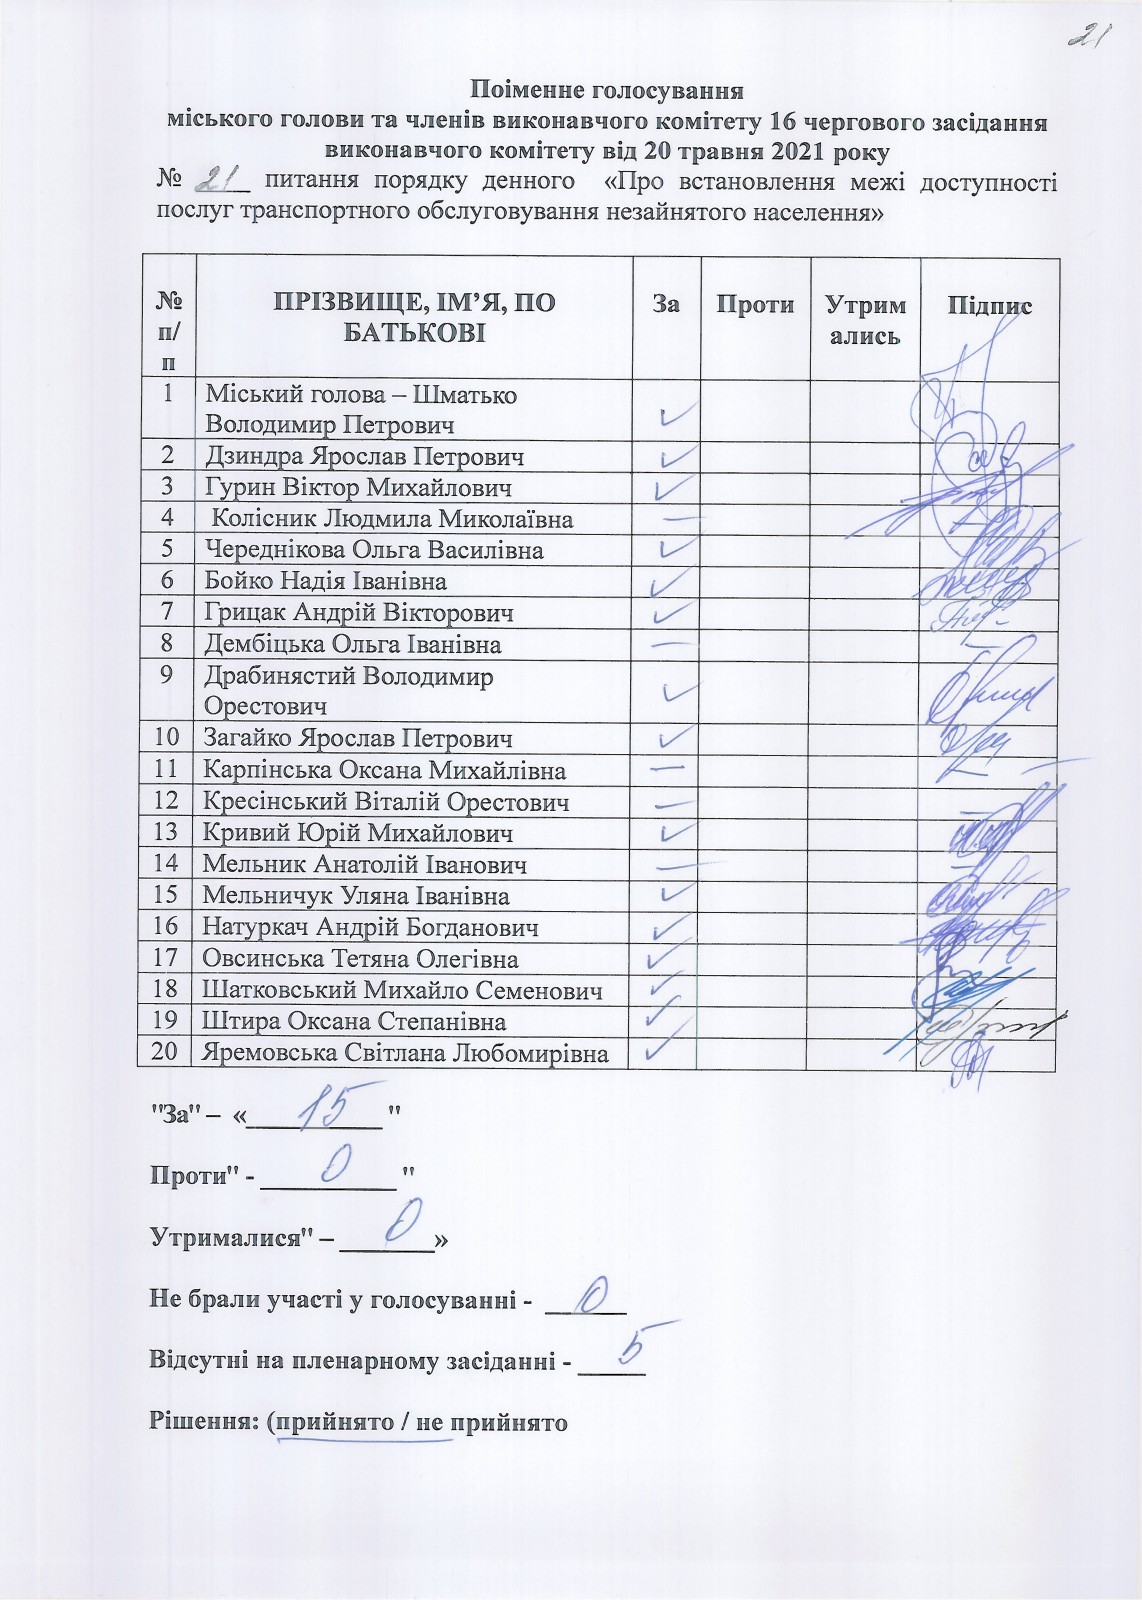 21
Поіменне голосування
міського голови та членів виконавчого комітету 16 чергового засідання
виконавчого комітету від 20 травня 2021 року
№ 21 питання порядку денного «Про встановлення межі доступності
послуг транспортного обслуговування незайнятого населення»
№ п/п ПРІЗВИЩЕ, ІМ’Я, ПО БАТЬКОВІ За Проти Утримались Підпис
1 Міський голова – Шматько
Володимир Петрович ✓
2 Дзиндра Ярослав Петрович ✓
3 Гурин Віктор Михайлович ✓
4 Колісник Людмила Миколаївна –
5 Череднікова Ольга Василівна ✓
6 Бойко Надія Іванівна ✓
7 Грицак Андрій Вікторович ✓
8 Дембіцька Ольга Іванівна – –
9 Драбинястий Володимир
Орестович ✓
10 Загайко Ярослав Петрович ✓
11 Карпінська Оксана Михайлівна – –
12 Кресінський Віталій Орестович – –
13 Кривий Юрій Михайлович ✓
14 Мельник Анатолій Іванович – –
15 Мельничук Уляна Іванівна ✓
16 Натуркач Андрій Богданович ✓
17 Овсинська Тетяна Олегівна ✓
18 Шатковський Михайло Семенович ✓
19 Штира Оксана Степанівна ✓
20 Яремовська Світлана Любомирівна ✓
"За" – « 15 "
Проти" - 0 "
Утрималися" – 0 »
Не брали участі у голосуванні - 0
Відсутні на пленарному засіданні - 5
Рішення: (прийнято / не прийнято